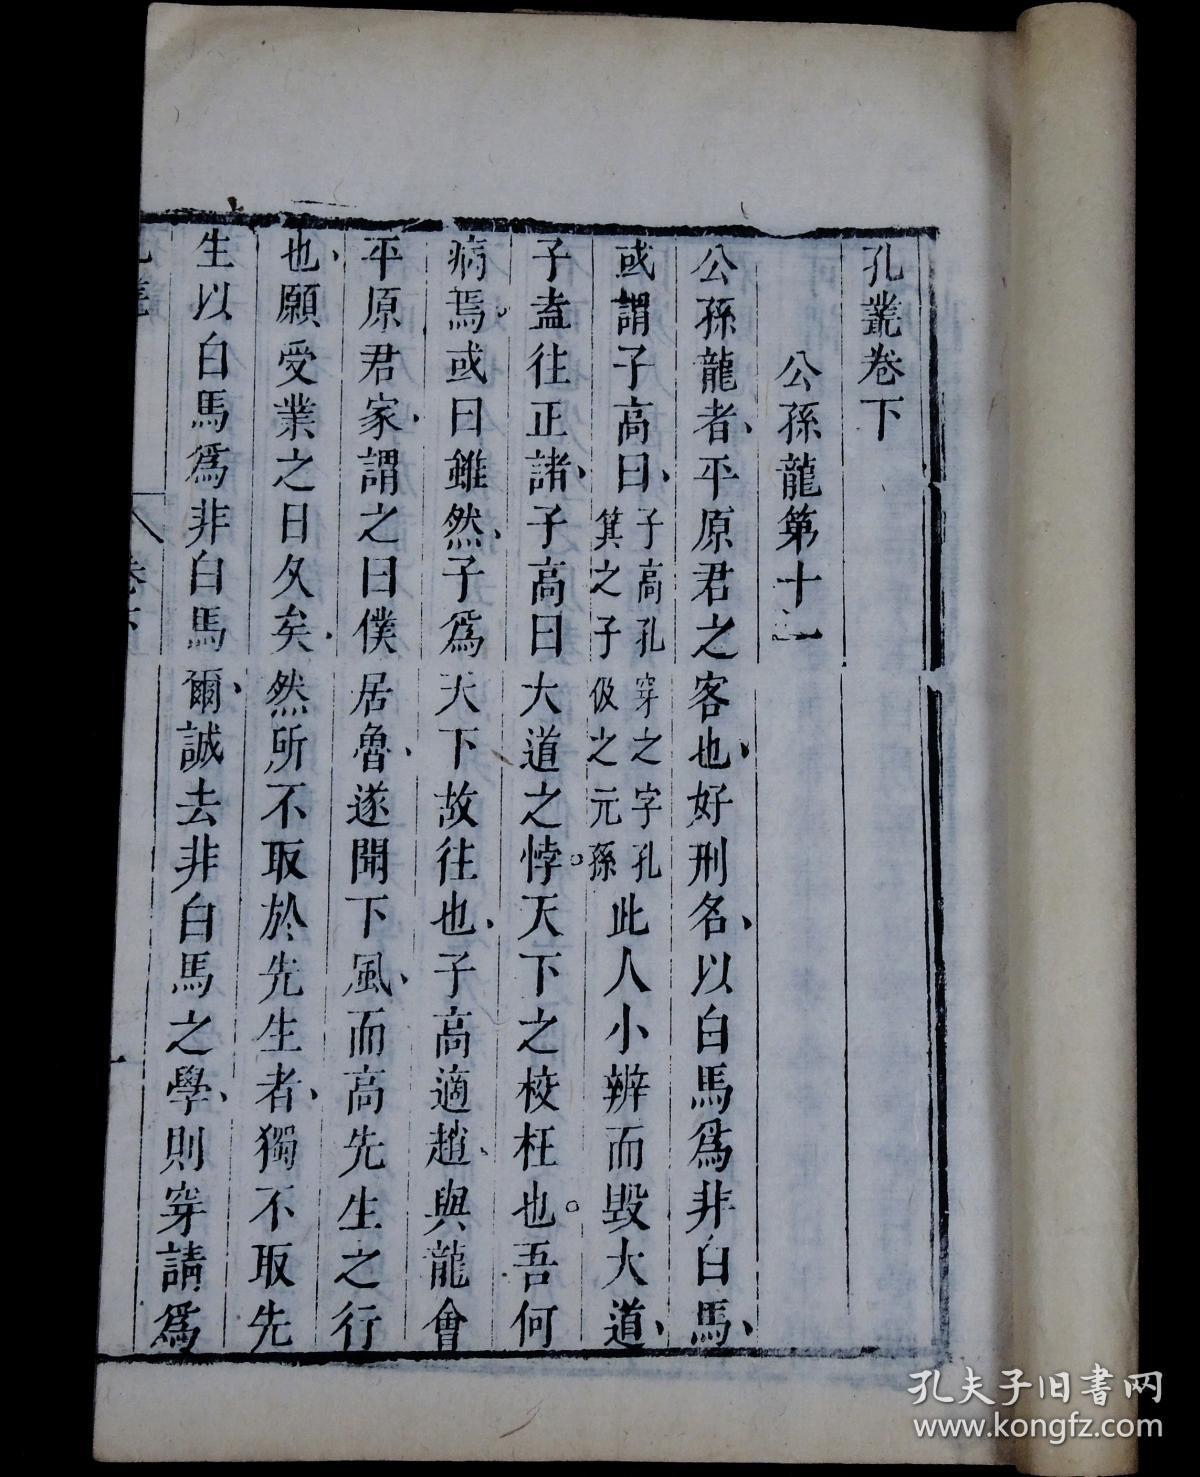 孔叢卷下
公孫龍第十二
公孫龍者、平原君之客也、好刑名、以白馬爲非白馬、
或謂子高曰、子高孔穿之字孔箕之子伋之元孫此人小辨而毀大道、
子盍往正諸、子高曰大道之悖。天下之校枉也。吾何
病焉。或曰雖然、子爲天下故往也、子高適趙、與龍會
平原君家、謂之曰僕居魯、遂聞下風、而高先生之行
也、願受業之日久矣、然所不取於先生者、獨不取先
生以白馬爲非白馬爾、誠去非白馬之學、則穿請爲
卷下
一
孔夫子旧書网
www.kongfz.com